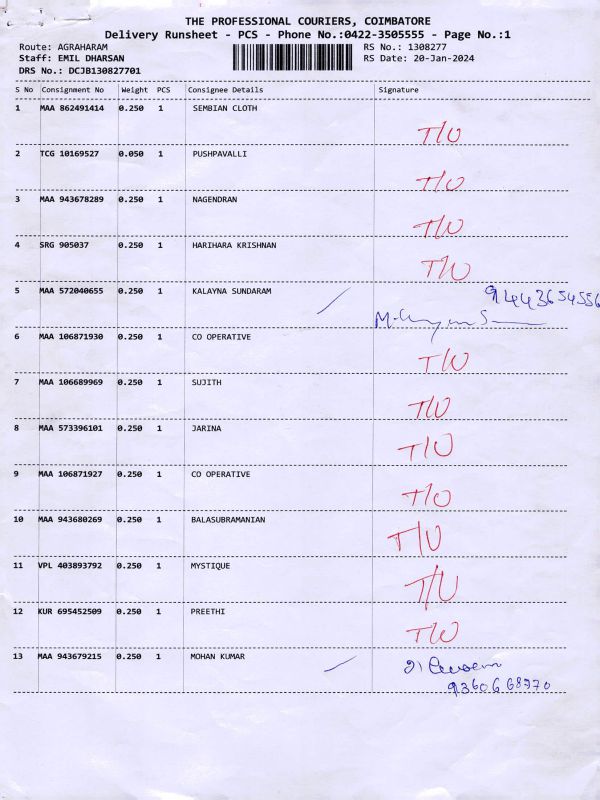 THE PROFESSIONAL COURIERS, COIMBATORE
Delivery Runsheet - PCS - Phone No.:0422-3505555 - Page No.:1
Route: AGRAHARAM RS No.: 1308277
Staff: EMIL DHARSAN RS Date: 20-Jan-2024
DRS No.: DCJB130827701
S No Consignment No Weight PCS Consignee Details Signature
1 MAA 862491414 0.250 1 SEMBIAN CLOTH
T/U
2 TCG 10169527 0.050 1 PUSHPAVALLI
T/U
3 MAA 943678289 0.250 1 NAGENDRAN
T/U
4 SRG 905037 0.250 1 HARIHARA KRISHNAN
T/U
5 MAA 572040655 0.250 1 KALAYNA SUNDARAM 9443654556
6 MAA 106871930 0.250 1 CO OPERATIVE
T/U
7 MAA 106689969 0.250 1 SUJITH
T/U
8 MAA 573396101 0.250 1 JARINA
T/U
9 MAA 106871927 0.250 1 CO OPERATIVE
T/U
10 MAA 943680269 0.250 1 BALASUBRAMANIAN
T/U
11 VPL 403893792 0.250 1 MYSTIQUE
T/U
12 KUR 695452509 0.250 1 PREETHI
T/U
13 MAA 943679215 0.250 1 MOHAN KUMAR
9360668970